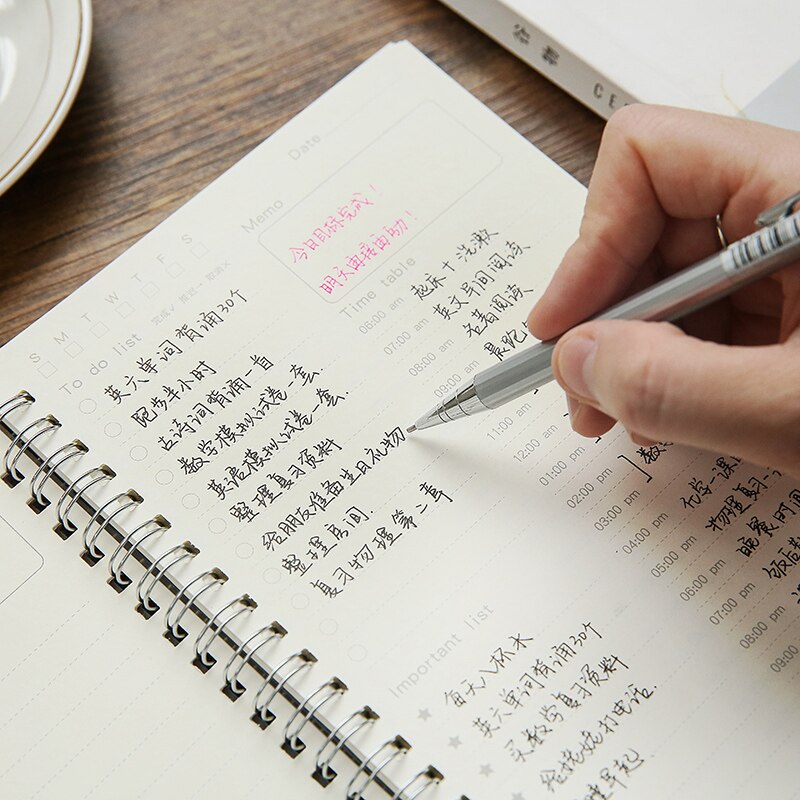 谷 都 CE
Date
Memo
今日目标完成！
明天再接再励！
S M T W T F S
To do list
英六单词背诵30个
跑步半小时
古诗词背诵一首
数学模拟试卷一套
英语模拟试卷一套.
整理复习资料
给朋友准备生日礼物
整理房间.
复习物理第二章
Time table
06:00 am 起床+洗漱
07:00 am 英文早间阅读
08:00 am 名著阅读
09:00 am 晨跑
11:00 am
12:00 am
01:00 pm
02:00 pm 数
03:00 pm
04:00 pm 化学一课
05:00 pm 物理复习一
06:00 pm 晚餐时间
07:00 pm 饭后
08:00 pm
09:00
Important list
每天八杯水
英六单词背诵30个
买数学复习资料
给姥姥打电话.
早起.